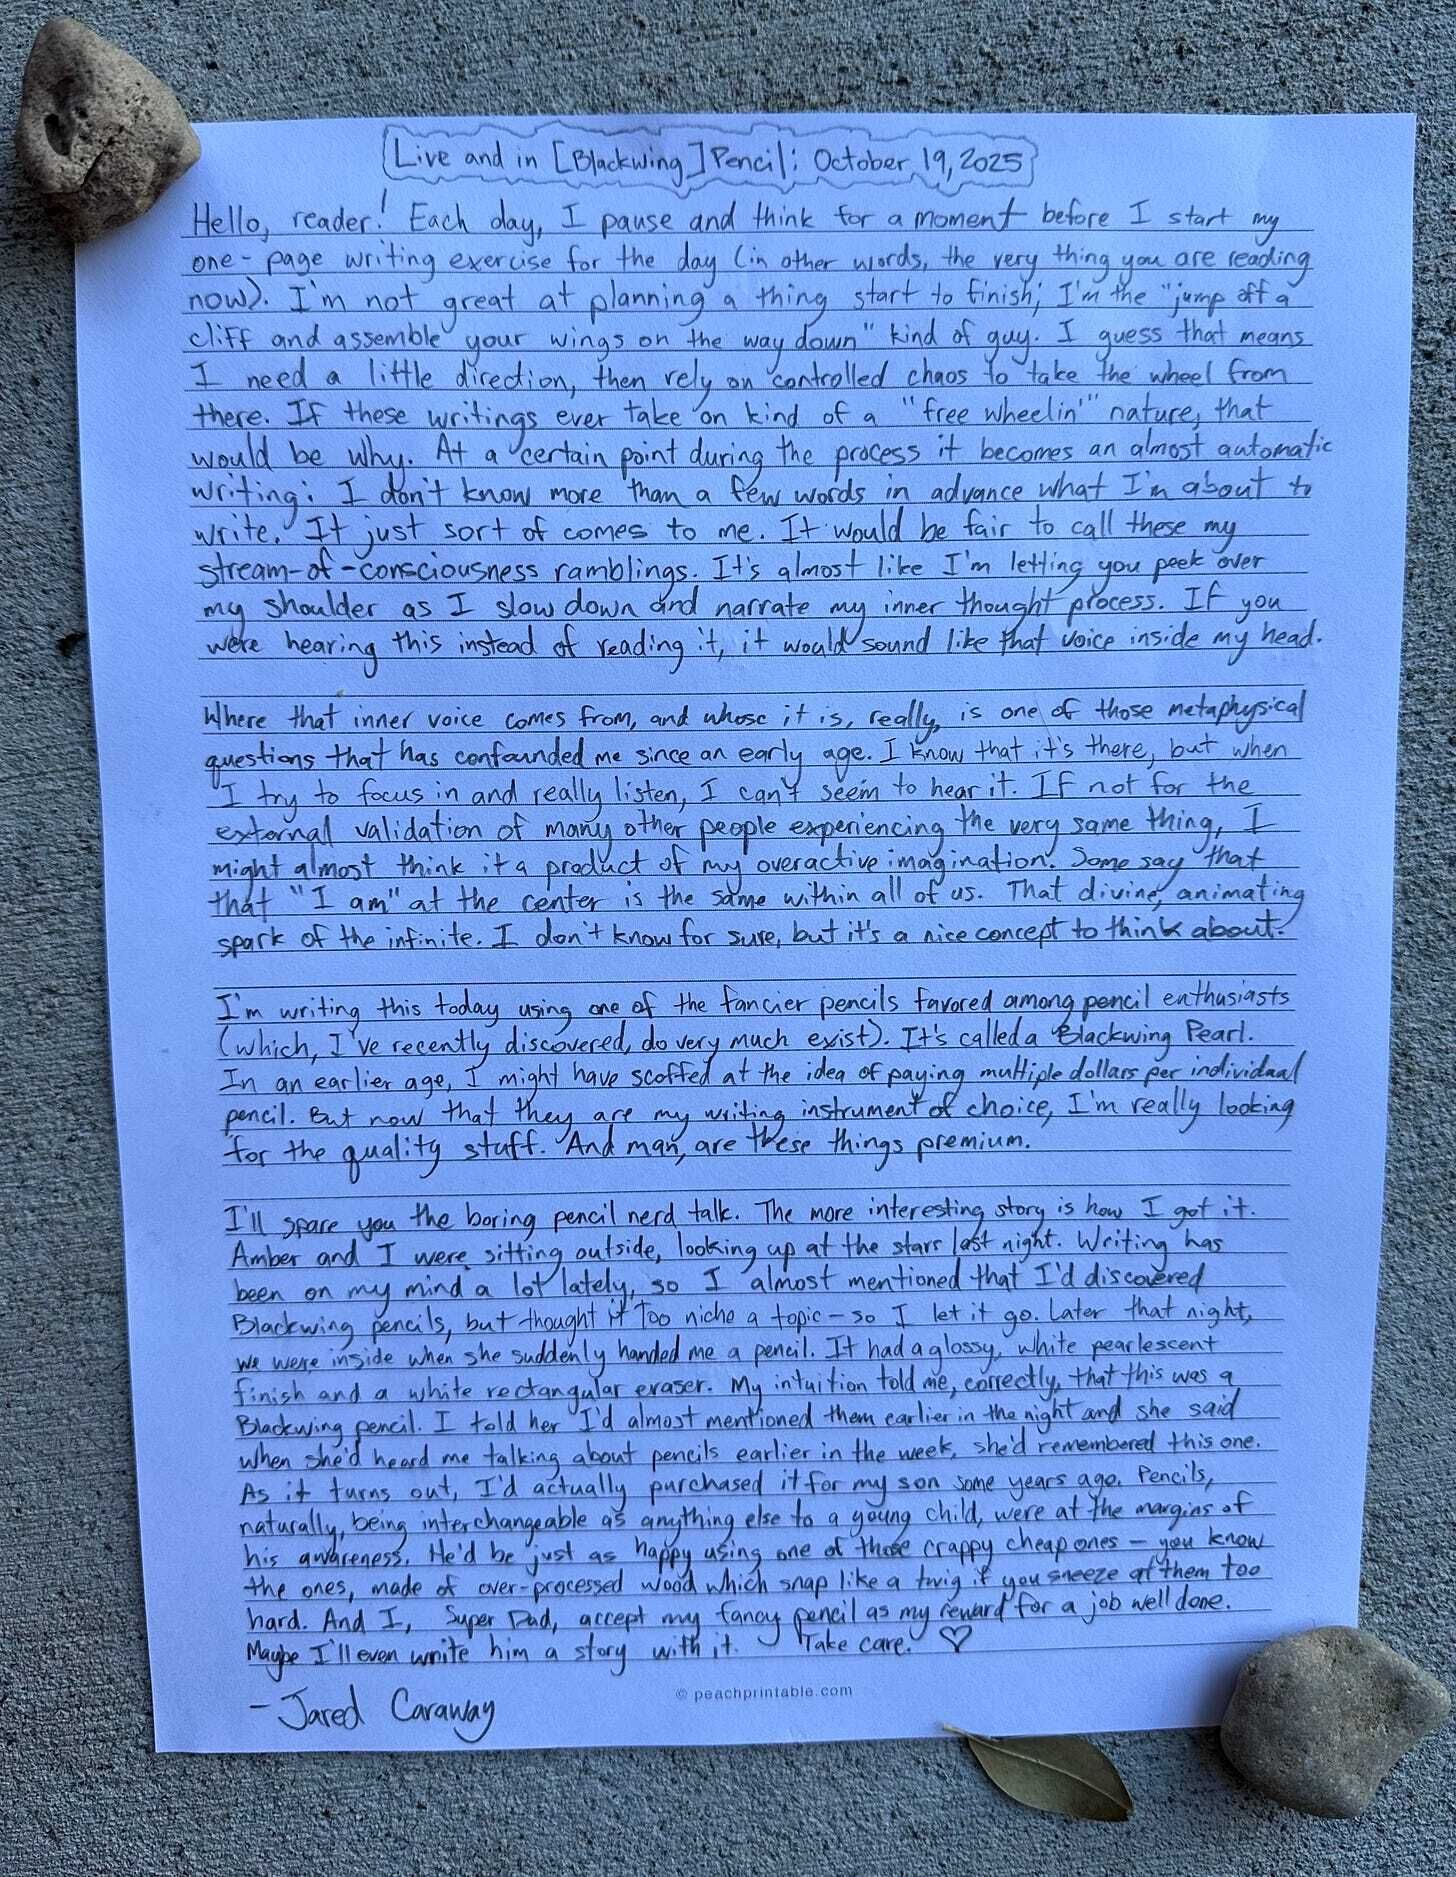 Live and in [Blackwing] Pencil: October 19, 2025
Hello, reader! Each day, I pause and think for a moment before I start my
one-page writing exercise for the day (in other words, the very thing you are reading
now). I'm not great at planning a thing start to finish; I'm the "jump off a
cliff and assemble your wings on the way down" kind of guy. I guess that means
I need a little direction, then rely on controlled chaos to take the wheel from
there. If these writings ever take on kind of a "free wheelin'" nature, that
would be why. At a certain point during the process it becomes an almost automatic
writing: I don't know more than a few words in advance what I'm about to
write. It just sort of comes to me. It would be fair to call these my
stream-of-consciousness ramblings. It's almost like I'm letting you peek over
my shoulder as I slow down and narrate my inner thought process. If you
were hearing this instead of reading it, it would sound like that voice inside my head.
Where that inner voice comes from, and whose it is, really, is one of those metaphysical
questions that has confounded me since an early age. I know that it's there, but when
I try to focus in and really listen, I can't seem to hear it. If not for the
external validation of many other people experiencing the very same thing, I
might almost think it a product of my overactive imagination. Some say that
that "I am" at the center is the same within all of us. That divine, animating
spark of the infinite. I don't know for sure, but it's a nice concept to think about.
I'm writing this today using one of the fancier pencils favored among pencil enthusiasts
(which, I've recently discovered, do very much exist). It's called a Blackwing Pearl.
In an earlier age, I might have scoffed at the idea of paying multiple dollars per individual
pencil. But now that they are my writing instrument of choice, I'm really looking
for the quality stuff. And man, are these things premium.
I'll spare you the boring pencil nerd talk. The more interesting story is how I got it.
Amber and I were sitting outside, looking up at the stars last night. Writing has
been on my mind a lot lately, so I almost mentioned that I'd discovered
Blackwing pencils, but thought it too niche a topic - so I let it go. Later that night,
we were inside when she suddenly handed me a pencil. It had a glossy, white pearlescent
finish and a white rectangular eraser. My intuition told me, correctly, that this was a
Blackwing pencil. I told her I'd almost mentioned them earlier in the night and she said
when she'd heard me talking about pencils earlier in the week, she'd remembered this one.
As it turns out, I'd actually purchased it for my son some years ago. Pencils,
naturally, being interchangeable as anything else to a young child, were at the margins of
his awareness. He'd be just as happy using one of those crappy cheap ones - you know
the ones, made of over-processed wood which snap like a twig if you sneeze at them too
hard. And I, Super Dad, accept my fancy pencil as my reward for a job well done.
Maybe I'll even write him a story with it. Take care. ♡
- Jared Caraway
© peachprintable.com